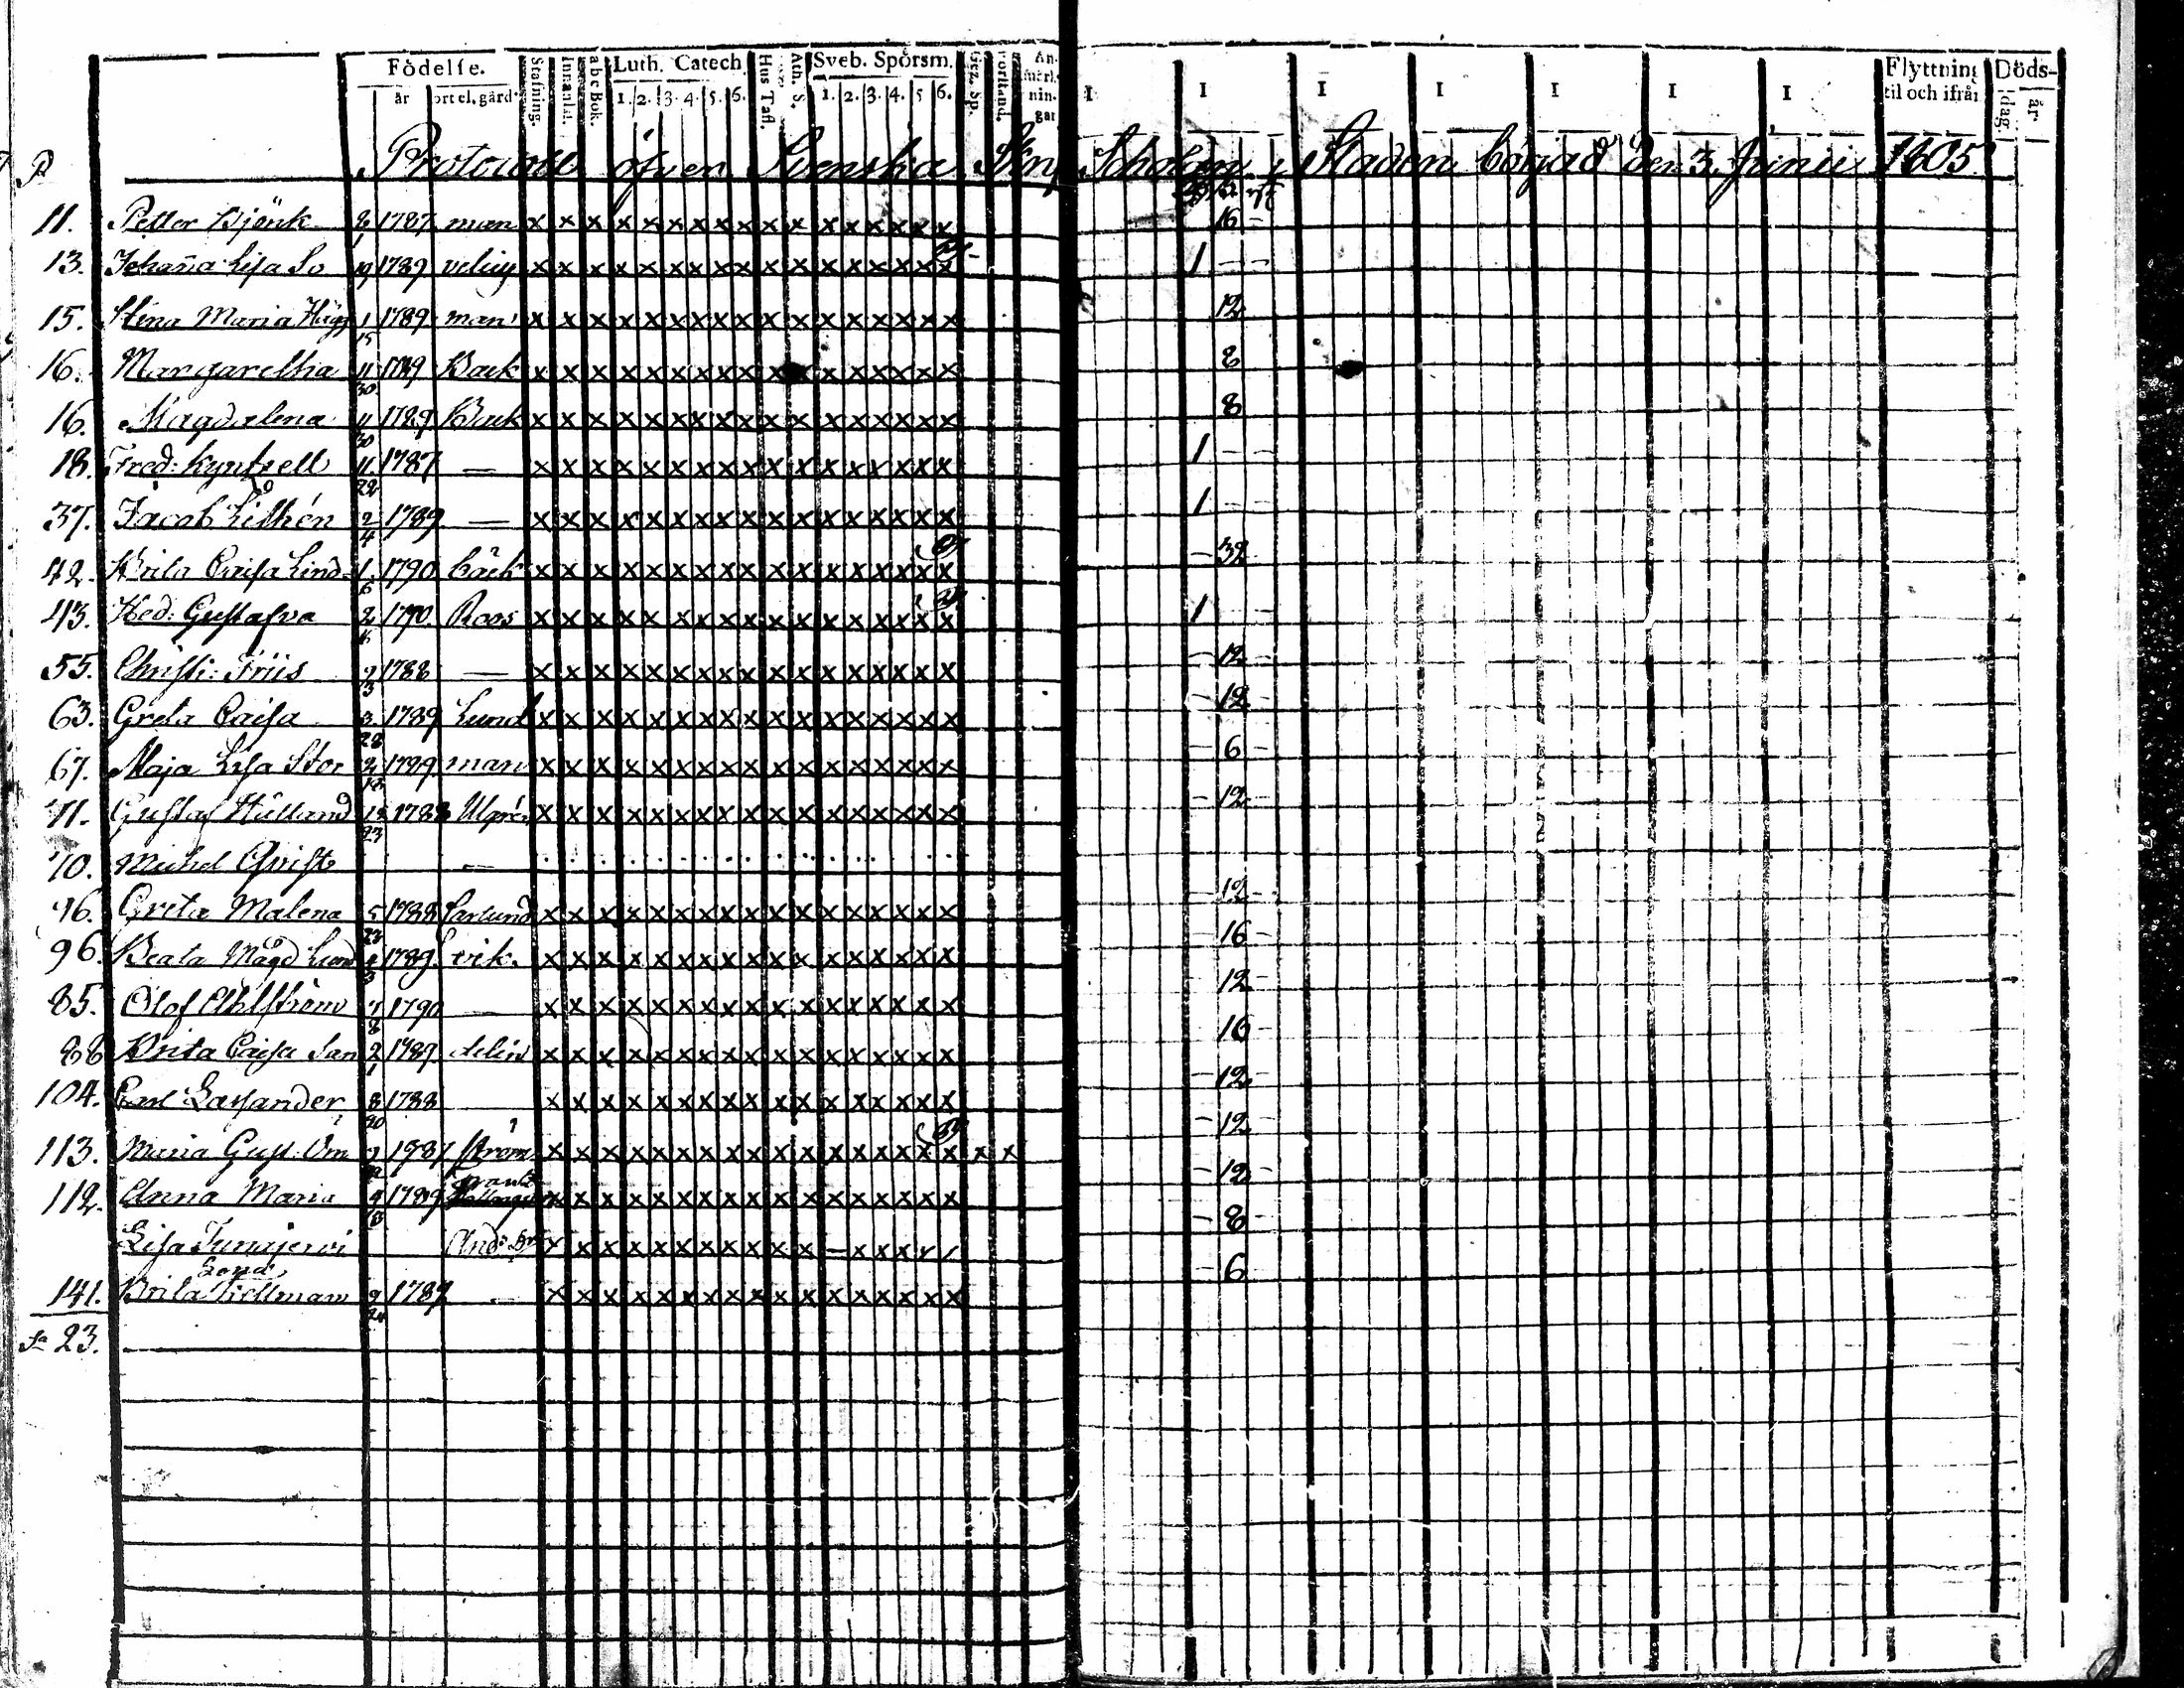 Födelse. Stafning. Innanläs. abc Bok. Luth. Catech. Hus Tafl. Ath. S. Sveb. Spörsm. Grz. Sp. Förstånd. An- I I I I I I I Flyttning Döds-
år ort el. gård. 1. 2. 3. 4. 5. 6. 1. 2. 3. 4. 5 6. märk- nin- gar til och ifrån dag. år.
P Protocoll öfver Svenska Scholan i Staden börjad den 3. Junii 1805.
11. Petter Björk 8 1 1787 man x x x x x x x x x x x x x x x x x 16 -
13. Johaña Lisa So 19 1789 velius x x x x x x x x x x x x x x x x x 1 - -
15. Stina Maria Hägg 1 15 1789 man x x x x x x x x x x x x x x x x x 12
16. Margaretha 11 30 1789 Back x x x x x x x x x x x x x x x x x 8
16. Magdalena 11 30 1789 Back x x x x x x x x x x x x x x x x x 8
18. Fred: Kyntzell 11 22 1787 — x x x x x x x x x x x x x x x x x 1 - -
37. Jacob Lithén 2 4 1789 — x x x x x x x x x x x x x x x x x 1 -
42. Brita Caisa Lind- 1 6 1790 bäck x x x x x x x x x x x x x x x x x - 32
43. Hed: Gustafva 2 1790 Roos x x x x x x x x x x x x x x x x x 1
55. Christi: Friis 9 3 1788 — x x x x x x x x x x x x x x x x x - 12 -
63. Greta Caisa 3 28 1789 Lund x x x x x x x x x x x x x x x x x - 12
67. Maja Lisa Stor 2 18 1789 man x x x x x x x x x x x x x x x x x - 6 -
71. Gustaf Hülland 12 23 1788 Ulgrén x x x x x x x x x x x x x x x x x - 12 -
70. Michel Christ —
96. Greta Malena 5 22 1788 Carlund x x x x x x x x x x x x x x x x x - 12 -
96. Beata Magd Lund 4 3 1789 vik. x x x x x x x x x x x x x x x x x - 16 -
85. Olof Ahlström 7 8 1790 — x x x x x x x x x x x x x x x x x - 12 -
88 Brita Caisa San 2 1 1789 delin x x x x x x x x x x x x x x x x x - 16
104. Carl Lassander 8 20 1788 x x x x x x x x x x x x x x x x x - 12 -
113. Maria Gust. Öm 9 1787 ström x x x x x x x x x x x x x x x x x x x - 12 -
112. Anna Maria 9 8 1789 x x x x x x x x x x x x x x x x x - 12 -
Lisa Turajervi And: x x x x x x x x x x x - x x x x - 8 -
141. Brita Tiellman 9 24 1789 — x x x x x x x x x x x x x x x x x - 6
Sa 23.